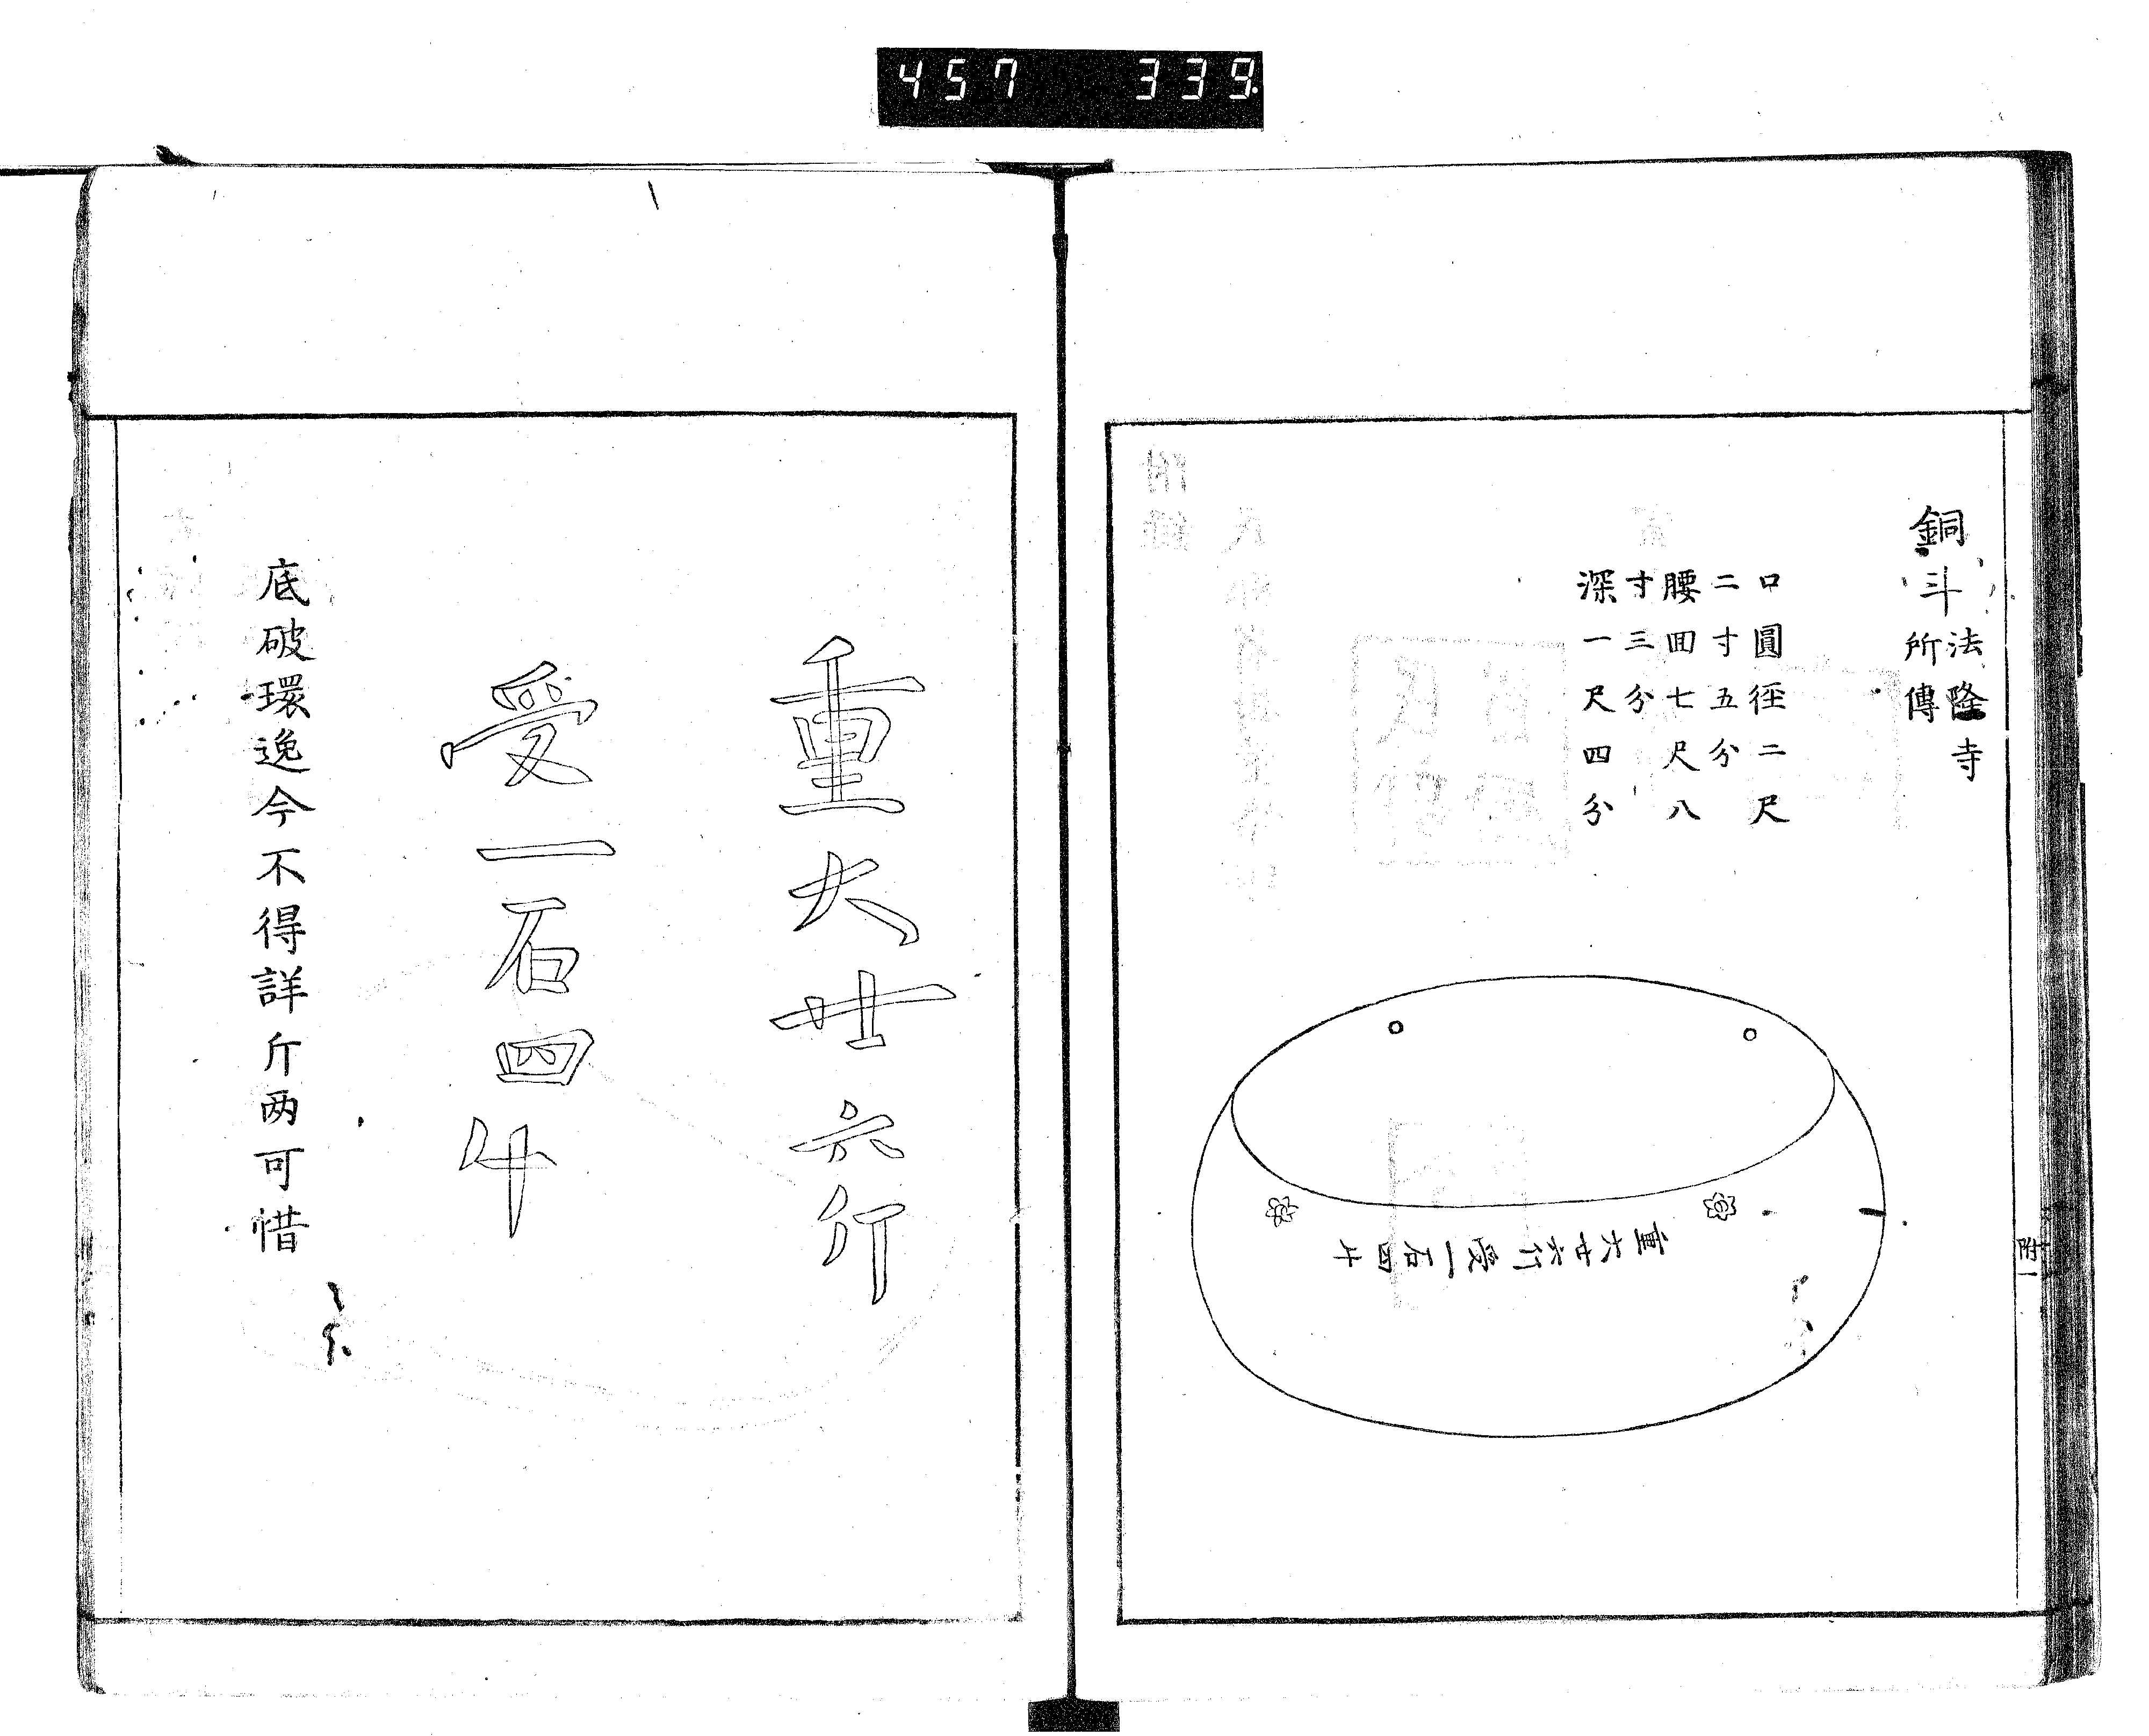 457 339
銅斗
法隆寺
所傳
口圓徑二尺
二寸五分
腰囬七尺八
寸三分
深一尺四分
重大廿六斤受一石四升
重大廿六斤
受一石四升
底破環逸今不得詳斤两可惜